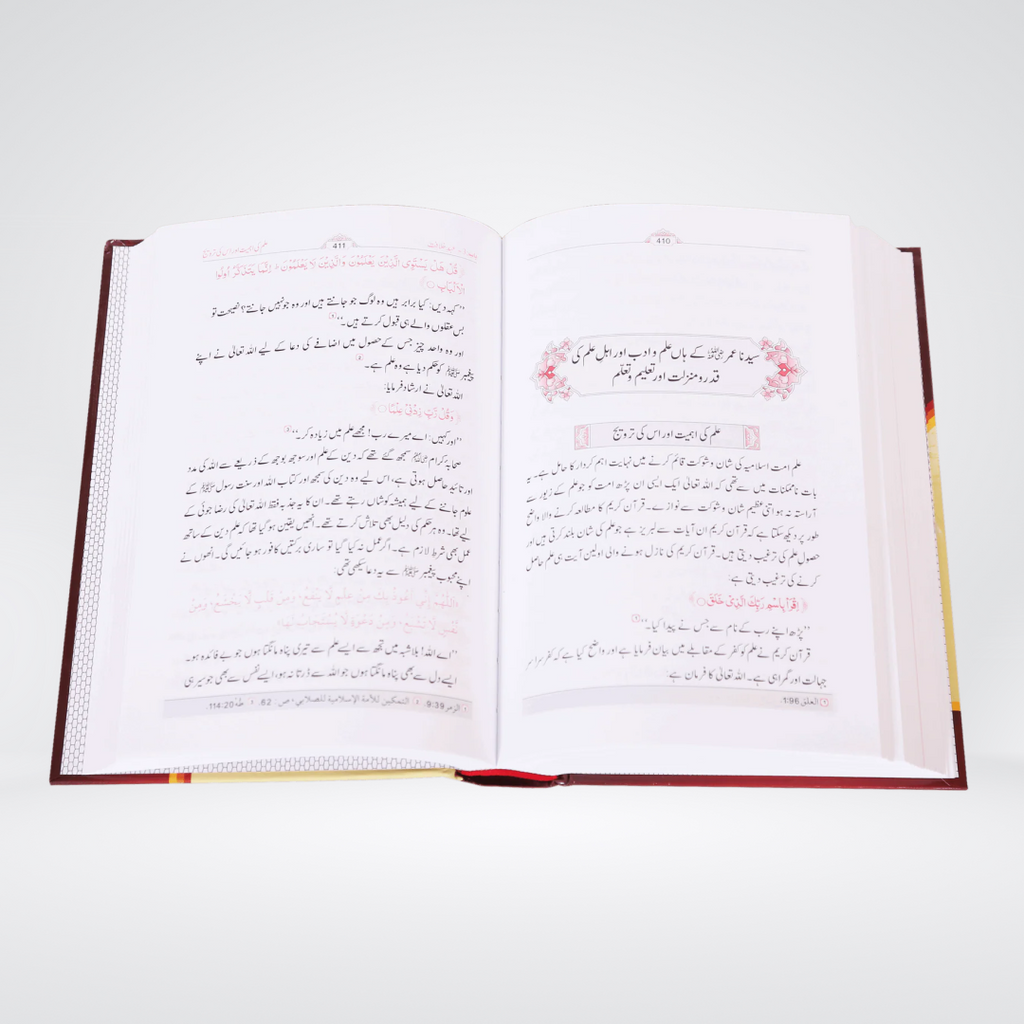 410
سیدنا عمر رضی اللہ عنہ کے ہاں علم و ادب اور اہل علم کی
قدرو منزلت اور تعلیم و تعلّم
علم کی اہمیت اور اس کی ترویج
علم امت اسلامیہ کی شان و شوکت قائم کرنے میں نہایت اہم کردار کا حامل ہے۔ یہ
بات ناممکنات میں سے تھی کہ اللہ تعالیٰ ایک ایسی ان پڑھ امت کو جو علم کے زیور سے
آراستہ نہ ہو اتنی عظیم شان و شوکت سے نوازے۔ قرآن کریم کا مطالعہ کرنے والا واضح
طور پر دیکھ سکتا ہے کہ قرآن کریم ان آیات سے لبریز ہے جو علم کی شان بلند کرتی ہیں اور
حصول علم کی ترغیب دیتی ہیں۔ قرآن کریم کی نازل ہونے والی اولین آیت ہی علم حاصل
کرنے کی ترغیب دیتی ہے:
﴿اِقْرَاْ بِاسْمِ رَبِّكَ الَّذِیْ خَلَقَ ○﴾
’’پڑھ اپنے رب کے نام سے جس نے پیدا کیا۔‘‘ ①
قرآن کریم نے علم کو کفر کے مقابلے میں بیان فرمایا ہے اور واضح کیا ہے کہ کفر سراسر
جہالت اور گمراہی ہے۔ اللہ تعالیٰ کا فرمان ہے:
① العلق 1:96.
411
علم کی اہمیت اور اس کی ترویج
﴿قُلْ هَلْ یَسْتَوِی الَّذِیْنَ یَعْلَمُوْنَ وَالَّذِیْنَ لَا یَعْلَمُوْنَ ؕ اِنَّمَا یَتَذَكَّرُ اُولُوا
الْاَلْبَابِ ○﴾
’’کہہ دیں: کیا برابر ہیں وہ لوگ جو جانتے ہیں اور وہ جو نہیں جانتے؟ نصیحت تو
بس عقلوں والے ہی قبول کرتے ہیں۔‘‘ ①
اور وہ واحد چیز جس کے حصول میں اضافے کی دعا کے لیے اللہ تعالیٰ نے اپنے
پیغمبر ﷺ کو حکم دیا ہے وہ علم ہے۔ ②
اللہ تعالیٰ نے ارشاد فرمایا:
﴿وَقُلْ رَّبِّ زِدْنِیْ عِلْمًا ○﴾
’’اور کہیں: اے میرے رب! مجھے علم میں زیادہ کر۔‘‘ ③
صحابہ کرام رضی اللہ عنہم سمجھ گئے تھے کہ دین کے علم اور سوجھ بوجھ کے ذریعے سے اللہ کی مدد
اور تائید حاصل ہوتی ہے، اس لیے وہ دین کی سمجھ اور کتاب اللہ اور سنت رسول ﷺ کے
علوم جاننے کے لیے ہمیشہ کوشاں رہتے تھے۔ ان کا یہ جذبہ فقط اللہ تعالیٰ کی رضا جوئی کے
لیے تھا۔ وہ ہر حکم کی دلیل بھی تلاش کرتے تھے۔ انھیں یقین ہو گیا تھا کہ علم دین کے ساتھ
عمل بھی شرط لازم ہے۔ اگر عمل نہ کیا گیا تو ساری برکتیں کافور ہو جائیں گی۔ انھوں نے
اپنے محبوب پیغمبر ﷺ سے یہ دعا سیکھی تھی:
«اَللّٰهُمَّ إِنِّي أَعُوذُ بِكَ مِنْ عِلْمٍ لَا يَنْفَعُ، وَمِنْ قَلْبٍ لَا يَخْشَعُ، وَمِنْ
نَفْسٍ لَا تَشْبَعُ، وَمِنْ دَعْوَةٍ لَا يُسْتَجَابُ لَهَا»
’’اے اللہ! بلاشبہ میں تجھ سے ایسے علم سے تیری پناہ مانگتا ہوں جو بے فائدہ ہو۔
ایسے دل سے بھی پناہ مانگتا ہوں جو اللہ سے ڈرتا نہ ہو، ایسے نفس سے بھی جو سیر ہی
① الزمر 9:39. ② التمكين للأمة الإسلامية للصلابي، ص: 62. ③ طٰهٰ 114:20.